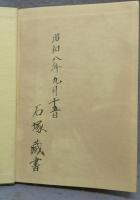 昭和八年九月十五日
石塚蔵書